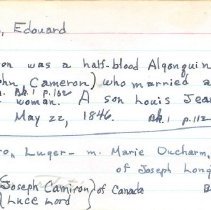 , Edouard
on was a half-blood Algonquin
hn, Cameron) who married a
Bk. 1 p. 152
woman. A son Louis Jea
May 22, 1846. Bk. 1 p. 112
ro, Luger - m. Marie Ducharm,
of Joseph Long
Joseph Camiron } of Canada B
Luce Lord